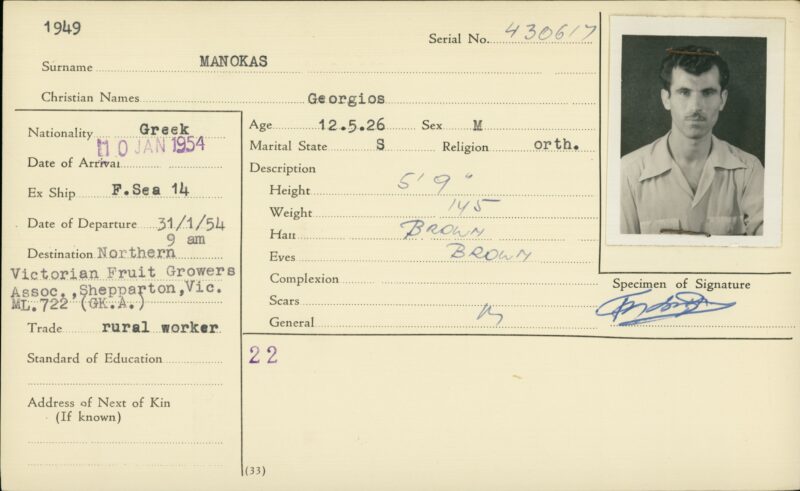 1949
Serial No. 430617
Surname MANOKAS
Christian Names Georgios
Nationality Greek
Date of Arrival 10 JAN 1954
Ex Ship F.Sea 14
Date of Departure 31/1/54
9 am
Destination Northern
Victorian Fruit Growers
Assoc.,Shepparton,Vic.
ML.722 (GK.A.)
Trade rural worker
Standard of Education
Address of Next of Kin
(If known)
Age 12.5.26 Sex M
Marital State S Religion orth.
Description
Height 5' 9"
Weight 145
Hair BROWN
Eyes BROWN
Complexion
Scars
General
22
(33)
Specimen of Signature